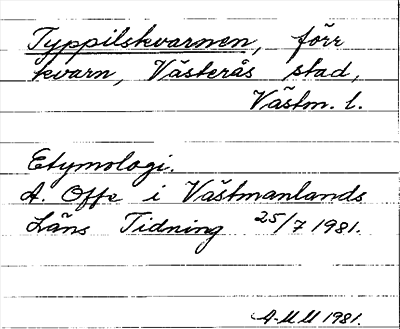 Typpilskvarnen, förr
kvarn, Västerås stad,
Västm. l.
Etymologi.
A. Offe i Västmanlands
Läns Tidning 25/7 1981.
A-MM 1981.